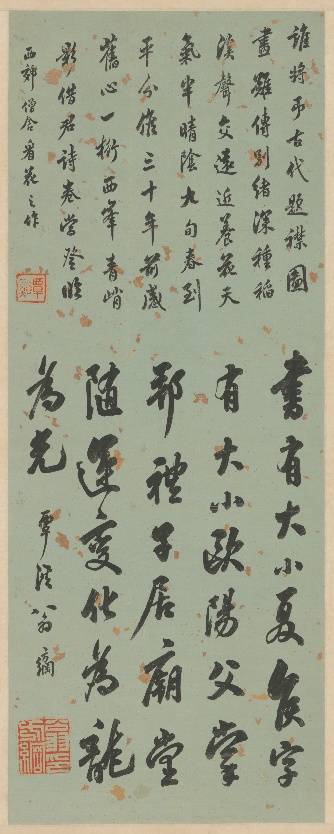 誰將弔古代題襟圖
畫雖傳別緒深種稻
溪聲交遠近養花天
氣半晴陰九旬春到
平分候三十年前感
舊心一桁西峯青峭
影借君詩卷當登臨
西郊僧舍看花之作
書有大小夏侯字
有大小歐陽父掌
邦禮子居廟堂
隨運變化為龍
為光 覃溪翁方綱